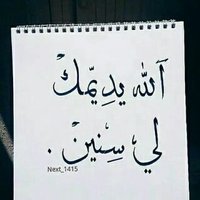 آلله يديّمكْ
لي سِنينْ .
Next_1415